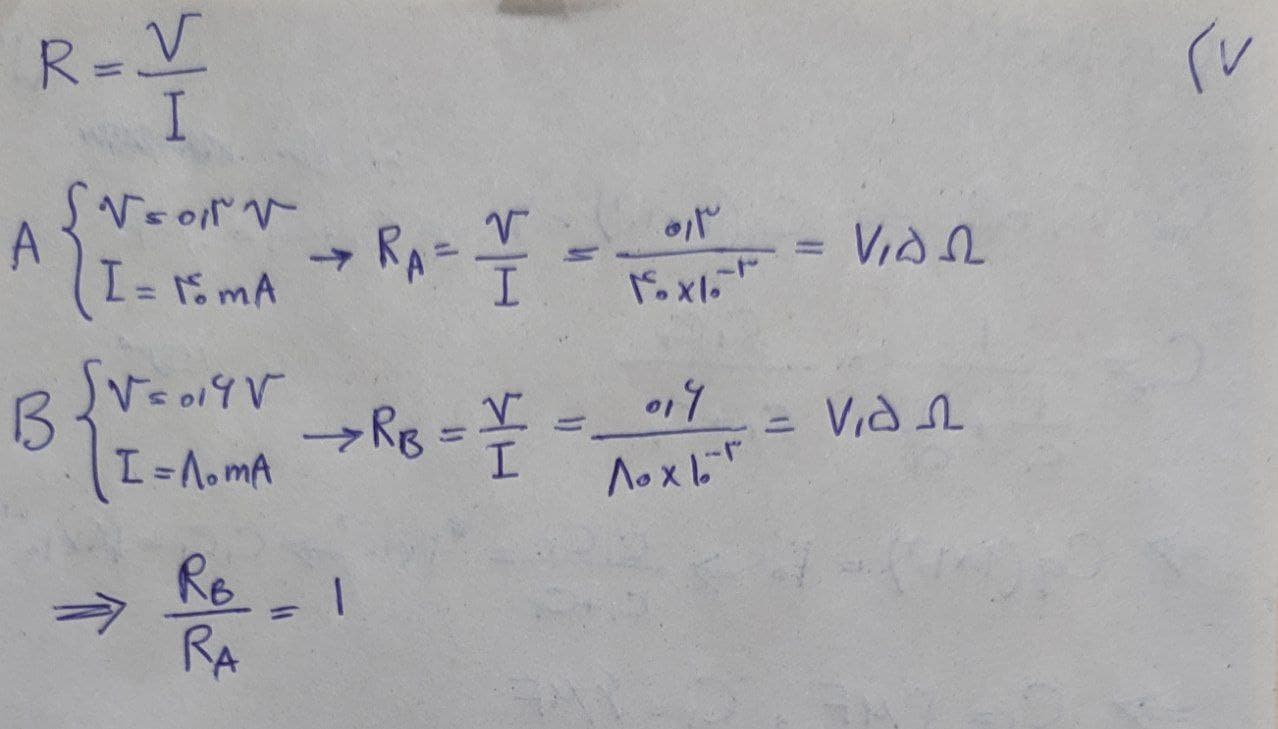 ۲۷
R = V/I
A { V = ۰,۳ V
I = ۴۰ mA → R_A = V/I = ۰,۳ / ۴۰ × ۱۰^-۳ = ۷,۵ Ω
B { V = ۰,۶ V
I = ۸۰ mA → R_B = V/I = ۰,۶ / ۸۰ × ۱۰^-۳ = ۷,۵ Ω
⇒ R_B/R_A = ۱